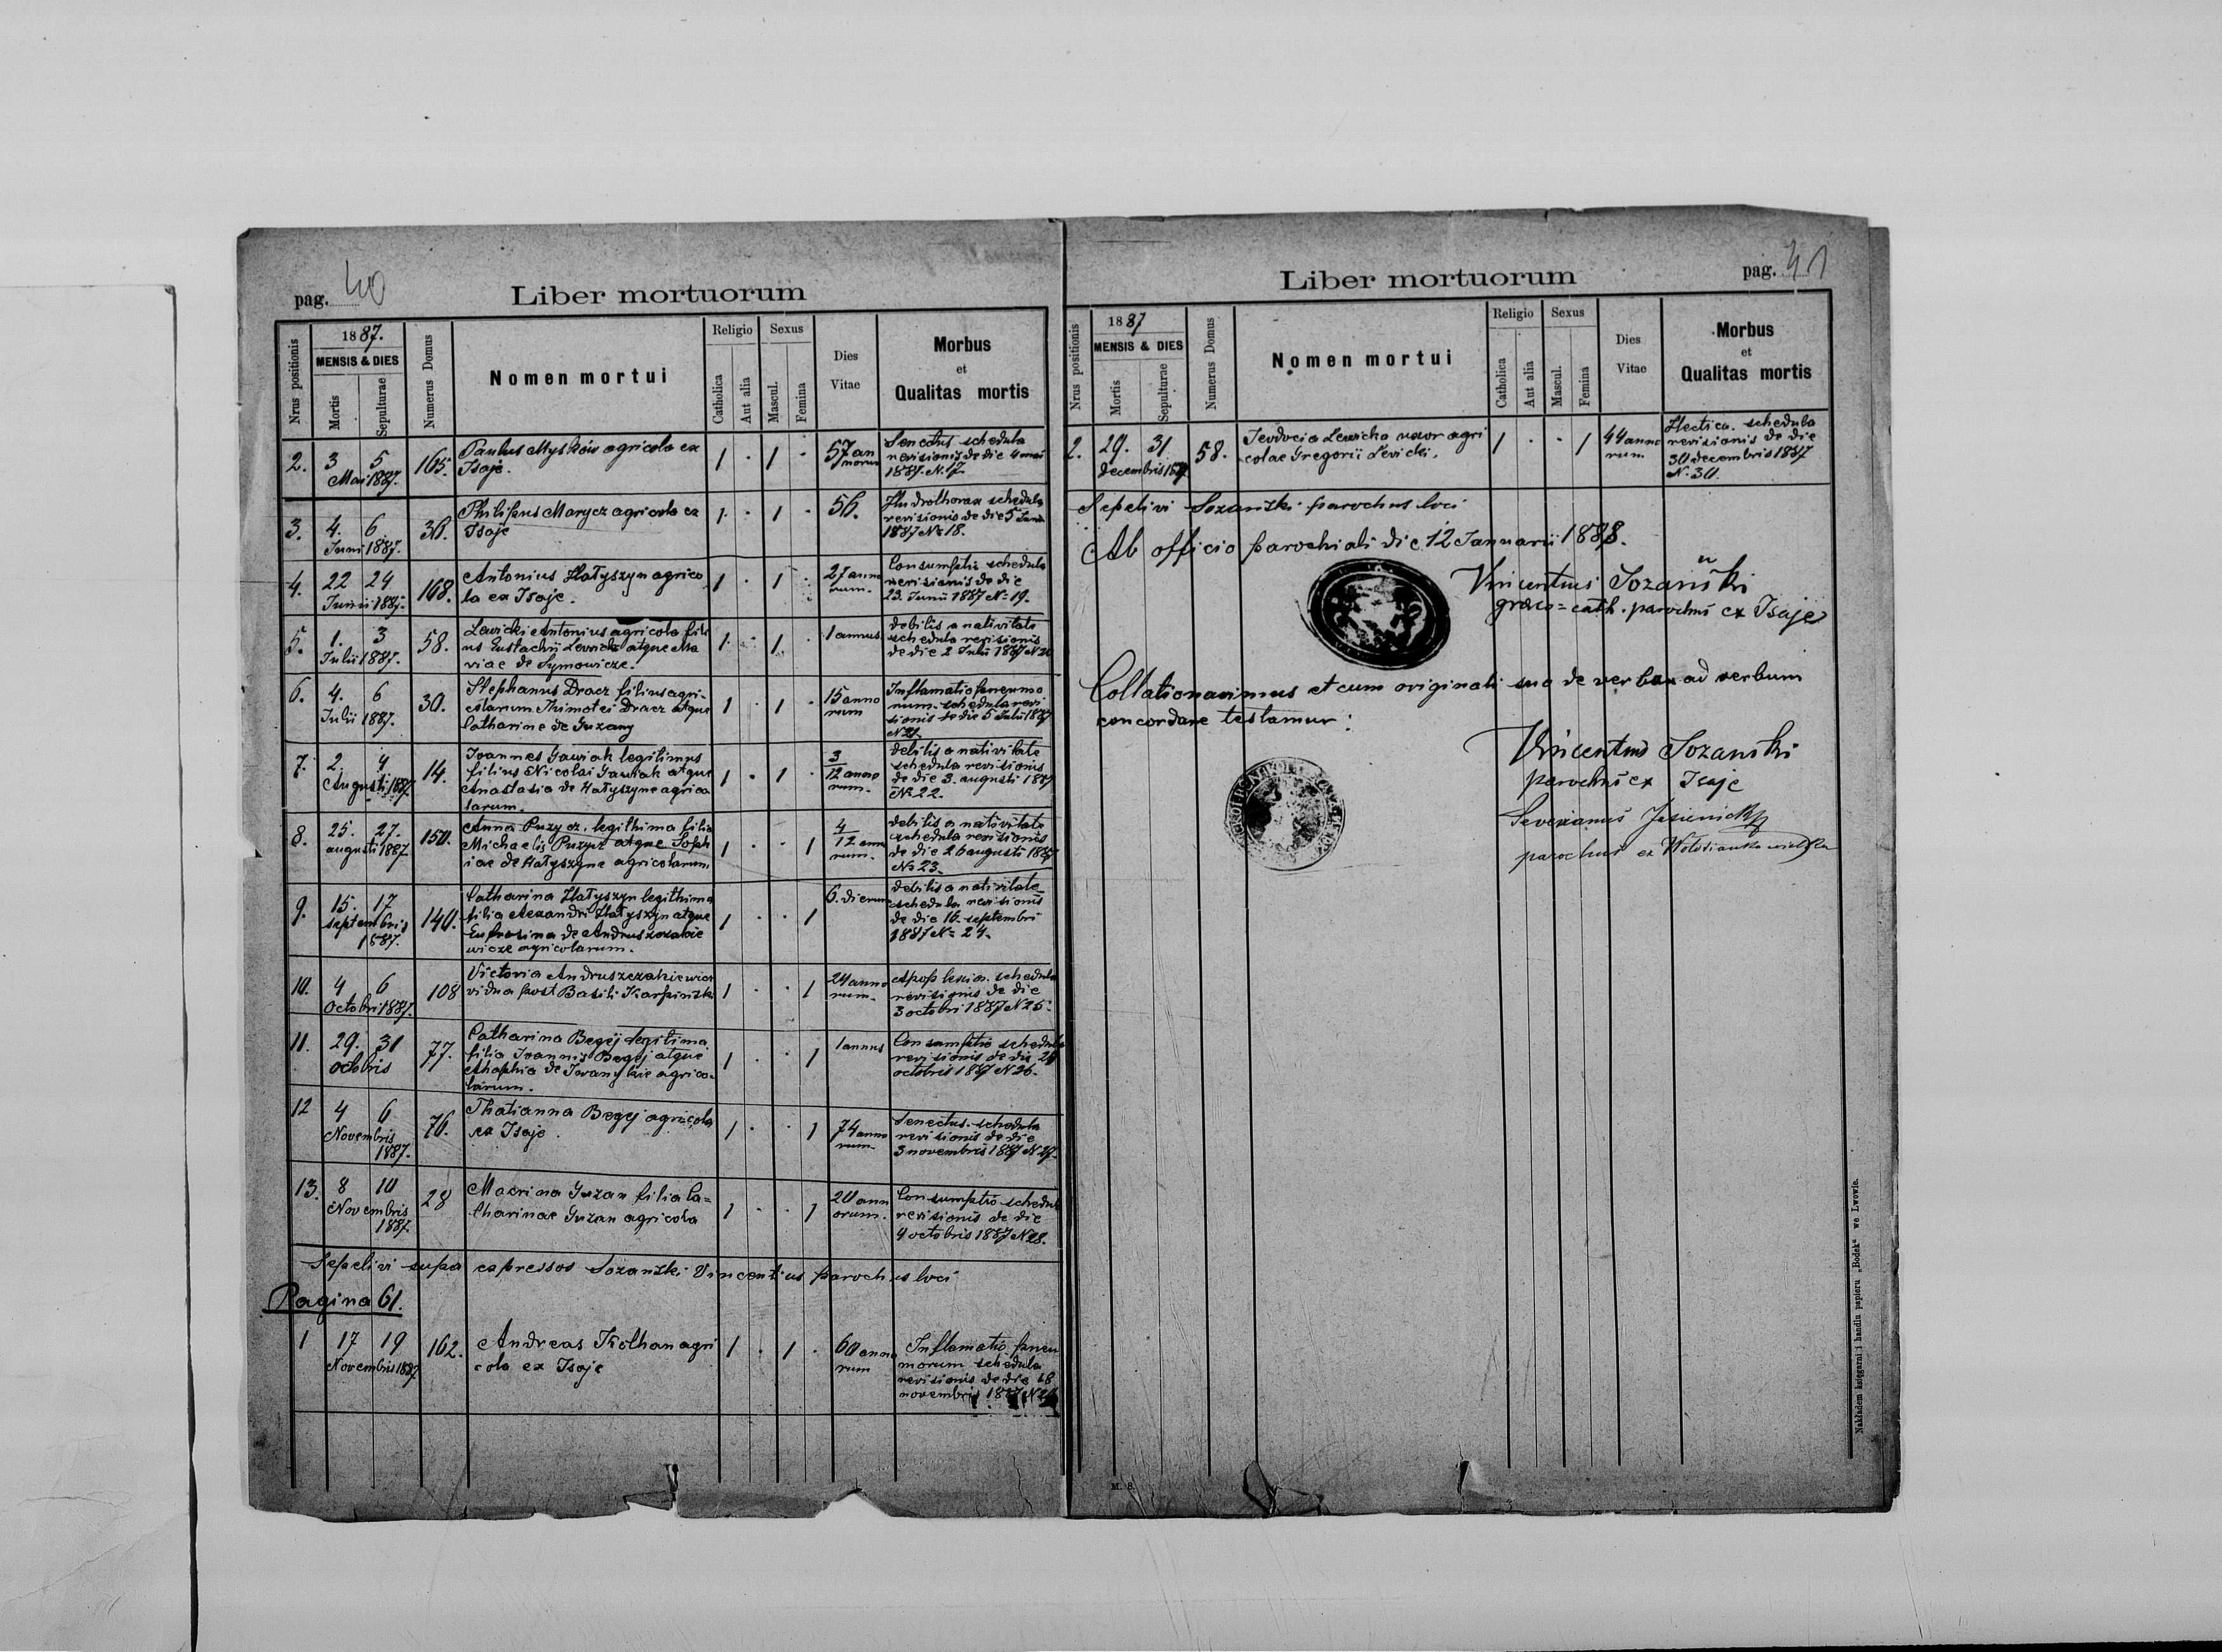 pag. 40
Liber mortuorum
Nrus positionis
1887.
MENSIS & DIES
Mortis
Sepulturae
Numerus Domus
Nomen mortui
Religio
Catholica
Aut alia
Sexus
Mascul.
Femina
Dies
Vitae
Morbus
et
Qualitas mortis
2. 3 5 165. Paulus Myskow agricola ex 1 · 1 · 57 an Senectus schedula
Mai 1887. Isaje. norum revisionis de die 4 mai
1887. N. 17.
3. 4. 6 36. Philipus Marycz agricola ex 1 · 1 · 56. schedula
Juni 1887. Isaje revisionis de die 5 Juni
1887 No 18.
4. 22 24 168. Antonius Hatyszyn agrico 1 · 1 · 27 anno Consumptio schedula
Junii 1887. la ex Isaje. rum. revisionis de die
23. Junii 1887 No 19.
5. 1. 3 58. Lewicki Antonius agricola fili 1 · 1 · 1 annus debilis a nativitate
Julii 1887. us Eustachii Lewicki atque Ma schedula revisionis
riae de Symowicze. de die 2 Julii 1887 N 20
6. 4. 6 30. Stephanus Dracz filius agri- 1 · 1 · 15 anno Inflamatio pneumo
Julii 1887. colarum Thimotei Dracz atque rum num. schedula revi
Catharine de Guzany sionis de die 5 Julii 1887
N 21.
7. 2. 4 14. Ivannes Gawiak legitimus 1 · 1 · 3/12 anno debilis a nativitate
Augusti 1887. filius Nicolai Gawiak atque rum. schedula revisionis
Anastasia de Hatyszyne agrico de die 3. augusti 1887
larum. No 22.
8. 25. 27. 150. Anna Puzycz. legithima filia 1 · · 1 4/12 anno debilis a nativitate
augusti 1887 Michaelis Puzycz atque Soph rum. schedula revisionis
iae de Hatyszyne agricolarum de die 26 augusti 1887
No 23.
9. 15. 17 140. Catharina Hatyszyn legithima 1 · · 1 6. dierum debilis a nativitate
septembris filia Alexandri Hatyszyn atque schedula revisionis
1887. Eufrosina de Andruszczakie de die 16. septembri
wicze agricolarum. 1887 No 24.
10. 4 6 108 Victoria Andruszczakiewicz 1 · · 1 24 anno Apoplexia. schedula
Octobri 1887. vidua post Basili Karpinski rum. revisionis de die
3 octobri 1887 N 25.
11. 29. 31 77. Catharina Begej legitima 1 · · 1 1 annus Consumptio schedula
octobris filia Ivannis Begej atque revisionis de die 29
Ahaphia de Iwanyckie agrico- octobris 1887 N 26.
larum.
12 4 6 76. Thatianna Begej agricola 1 · · 1 74 anno Senectus. schedula
Novembris ex Isaje. rum. revisionis de die
1887. 3 novembris 1887 N 27.
13. 8 10 28 Macrina Guzan filia Ca= 1 · · 1 20 ann Consumptio schedula
Novembris tharinae Guzan agricola orum. revisionis de die
1887. 4 octobris 1887 N 28.
Sepelivi supra expressos Sozanski Vincentius parochus loci
Pagina 61.
1 17 19 162. Andreas Kolhan agri 1 · 1 · 60 anno Inflamatio pneu
Novembris 1887 cola ex Isaje rum morum schedula
revisionis de die 18
novembris 1887 N 29
pag. 41
Liber mortuorum
Nrus positionis
1887
MENSIS & DIES
Mortis
Sepulturae
Numerus Domus
Nomen mortui
Religio
Catholica
Aut alia
Sexus
Mascul.
Femina
Dies
Vitae
Morbus
et
Qualitas mortis
2. 29. 31 58. Teodocia Lewicka uxor agri 1 · · 1 44 anno Hectica. schedula
decembris 1887 colae Gregorii Levicki. rum revisionis de die
30 decembris 1887
N. 30.
Sepelivi Sozanski parochus loci
Ab officio parochiali die 12 Januarii 1888.
Vincentius Sozański
graeco=cath. parochus ex Isaje
Collationavimus et cum originali suo de verbo ad verbum
concordare testamur:
Vincentius Sozanski
parochus ex Isaje
Severianus Jasienicki
parochus ex Wołosianka wielka
Nakładem księgarni i handlu papieru „Bodek“ we Lwowie.
M. 8.